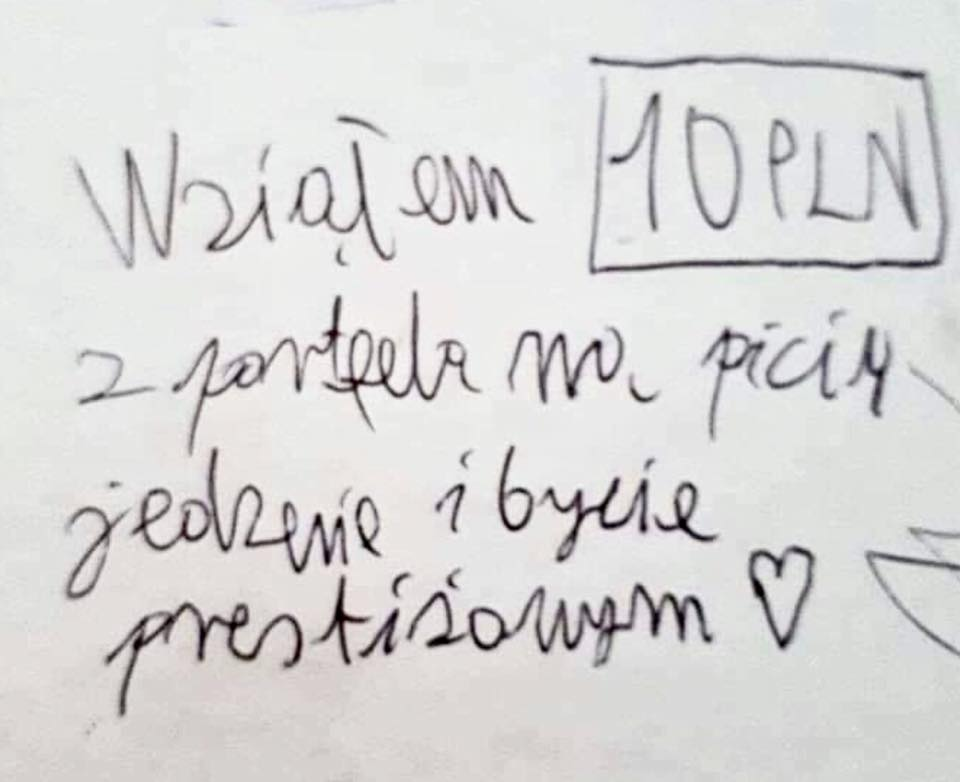 Wziąłem 10PLN
z portfela na picie
jedzenie i bycie
prestiżowym ♡